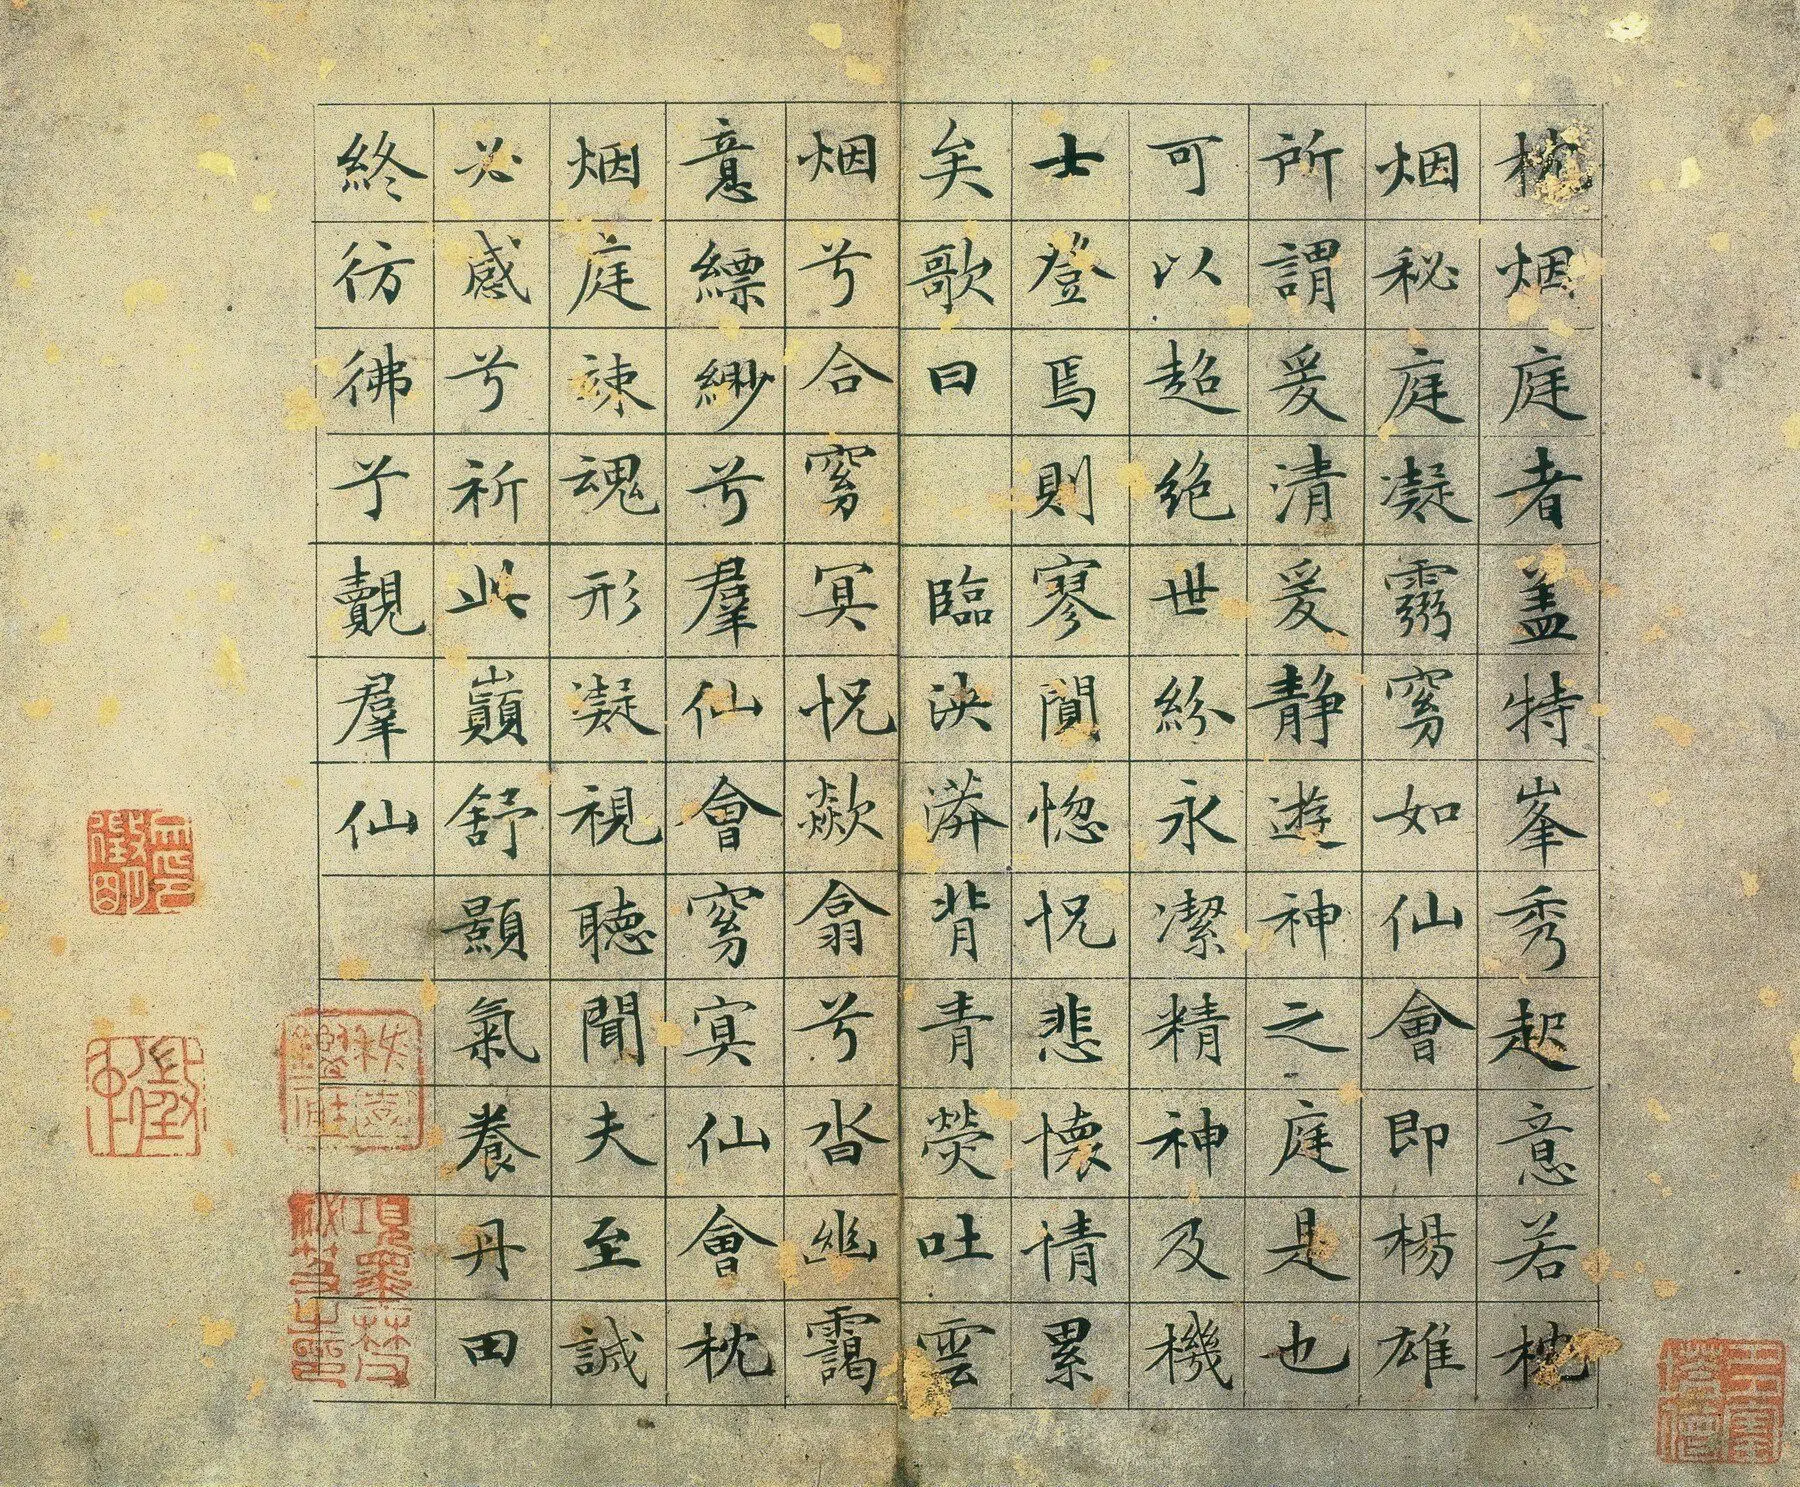 枕烟庭者盖特峯秀起意若枕
烟秘庭凝霛窈如仙會即楊雄
所謂爰清爰静遊神之庭是也
可以超絶世紛永潔精神及機
士登焉則寥闃惚怳悲懷情累
矣歌曰 臨泱漭背青熒吐雲
烟兮合窈冥怳欻翕兮沓幽靄
意縹緲兮羣仙會窈冥仙會枕
烟庭竦魂形凝視聽聞夫至誠
必感兮祈此巔舒顥氣養丹田
終彷彿兮覿羣仙
項墨林父
秘笈之印